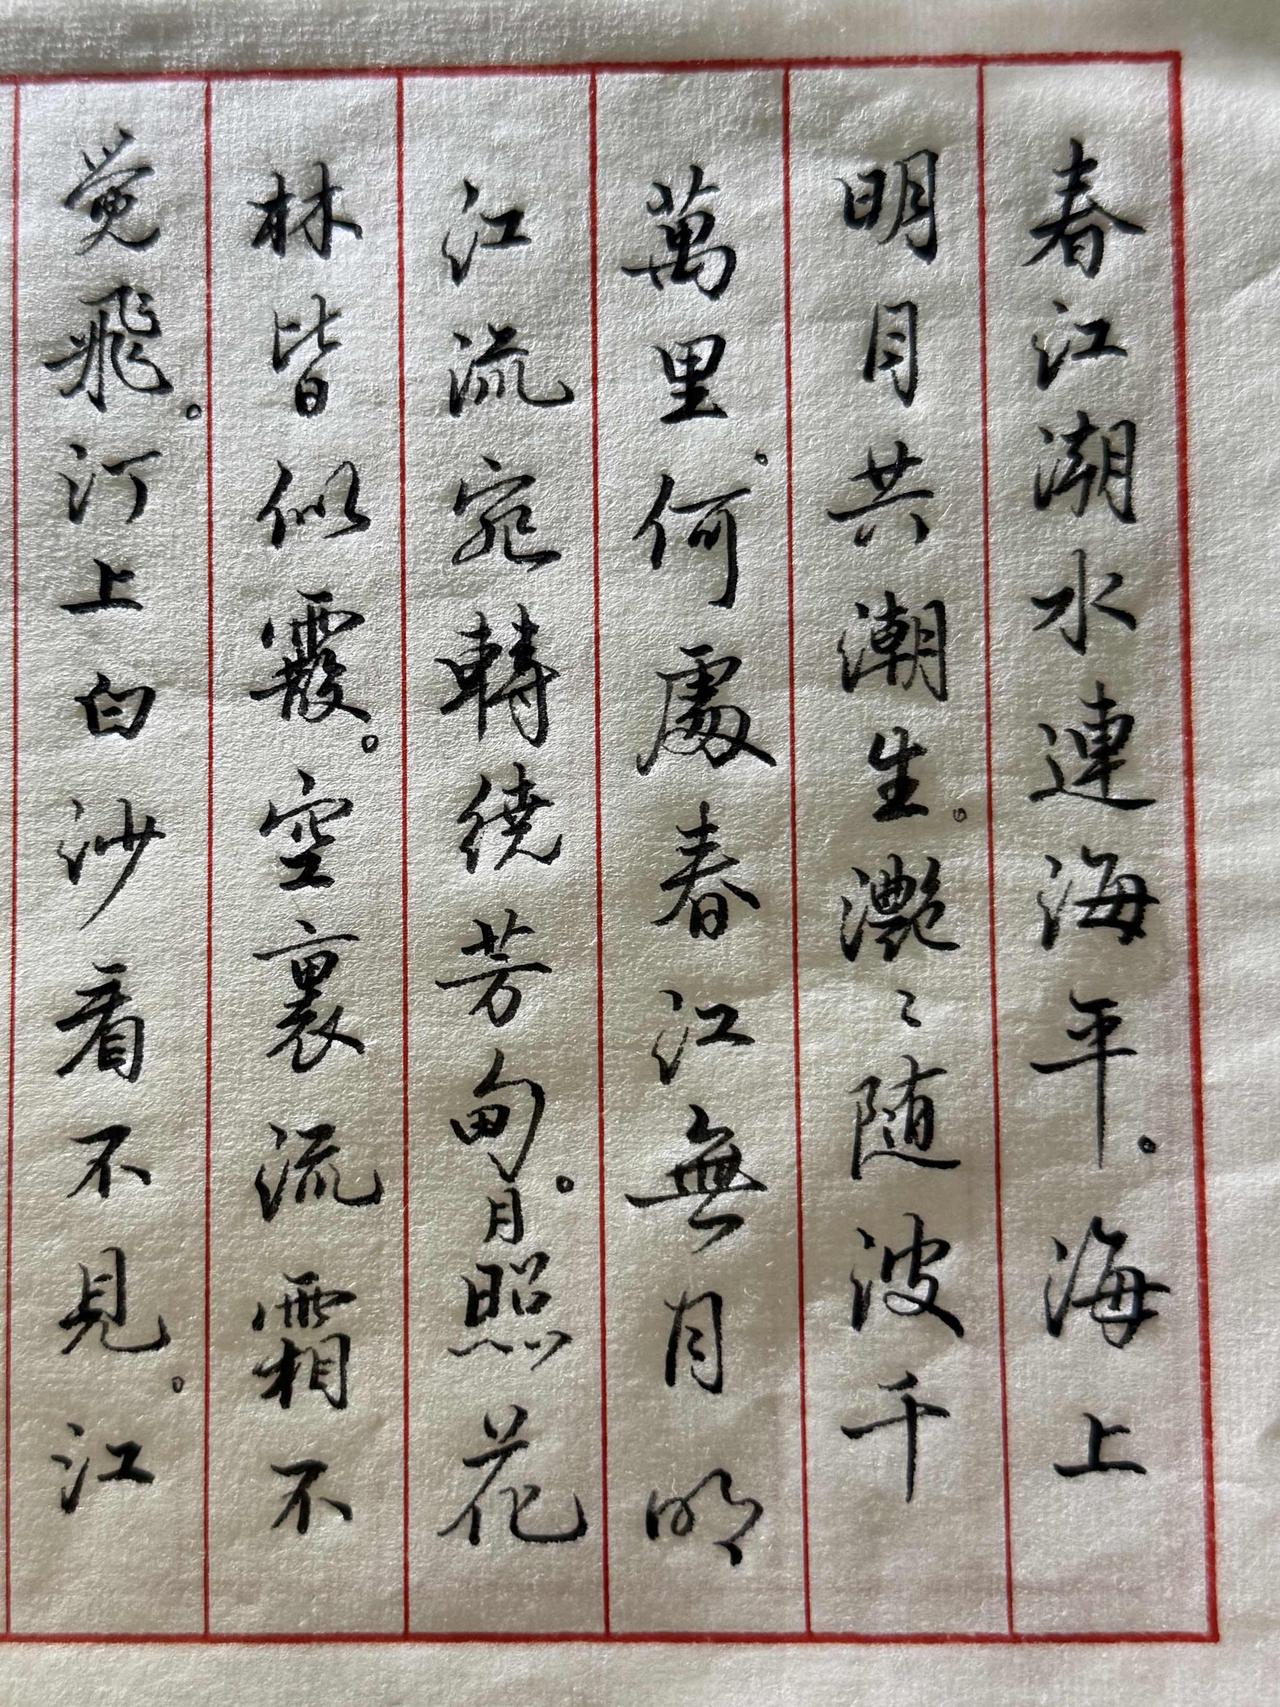 春江潮水連海平。海上
明月共潮生。灔〻随波千
萬里。何處春江無月明
江流宛轉繞芳甸。月照花
林皆似霰。空裏流霜不
覺飛。汀上白沙看不見。江